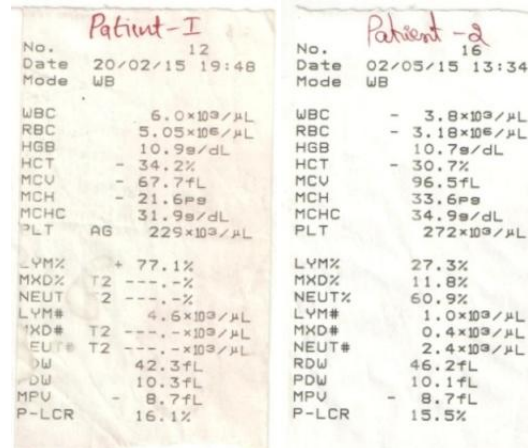 Patient-I
No. 12
Date 20/02/15 19:48
Mode WB
WBC 6.0×10³/µL
RBC 5.05×10⁶/µL
HGB 10.9g/dL
HCT - 34.2%
MCV - 67.7fL
MCH - 21.6pg
MCHC 31.9g/dL
PLT AG 229×10³/µL
LYM% + 77.1%
MXD% T2 ---.-%
NEUT T2 ---.-%
LYM# 4.6×10³/µL
MXD# T2 ---.-×10³/µL
NEUT# T2 ---.-×10³/µL
DW 42.3fL
DW 10.3fL
MPV - 8.7fL
P-LCR 16.1%
Patient-2
No. 16
Date 02/05/15 13:34
Mode WB
WBC - 3.8×10³/µL
RBC - 3.18×10⁶/µL
HGB 10.7g/dL
HCT - 30.7%
MCV 96.5fL
MCH 33.6pg
MCHC 34.9g/dL
PLT 272×10³/µL
LYM% 27.3%
MXD% 11.8%
NEUT% 60.9%
LYM# 1.0×10³/µL
MXD# 0.4×10³/µL
NEUT# 2.4×10³/µL
RDW 46.2fL
PDW 10.1fL
MPV - 8.7fL
P-LCR 15.5%